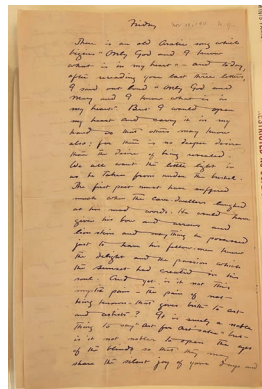 Friday
There is an old Arabic song which
begins "Only God and I know
what is in my heart" - and today,
after rereading your last three letters,
I said out loud "Only God and
Mary and I know what is in
my heart". But I would open
my heart and carry it in my
hand so that others may know
also; for there is no deeper desire
than the desire of being revealed.
We all want the little light in
us to be taken from under the bushel.
The first poet must have suffered
much when the cave-dwellers laughed
at his mad words. He would have
given his bow and arrows and
lion skin and everything he possessed
just to have his fellow-men know
the delight and the passion which
the sunset had created in his
soul. And yet, is it not this
mystic pain - the pain of not
being known - that gives birth to art
and artists? It is surely a noble
thing to say "Art for Art sake" - but
is it not nobler to open the eyes
of the blinds so that they may
share the silent joy of your days and